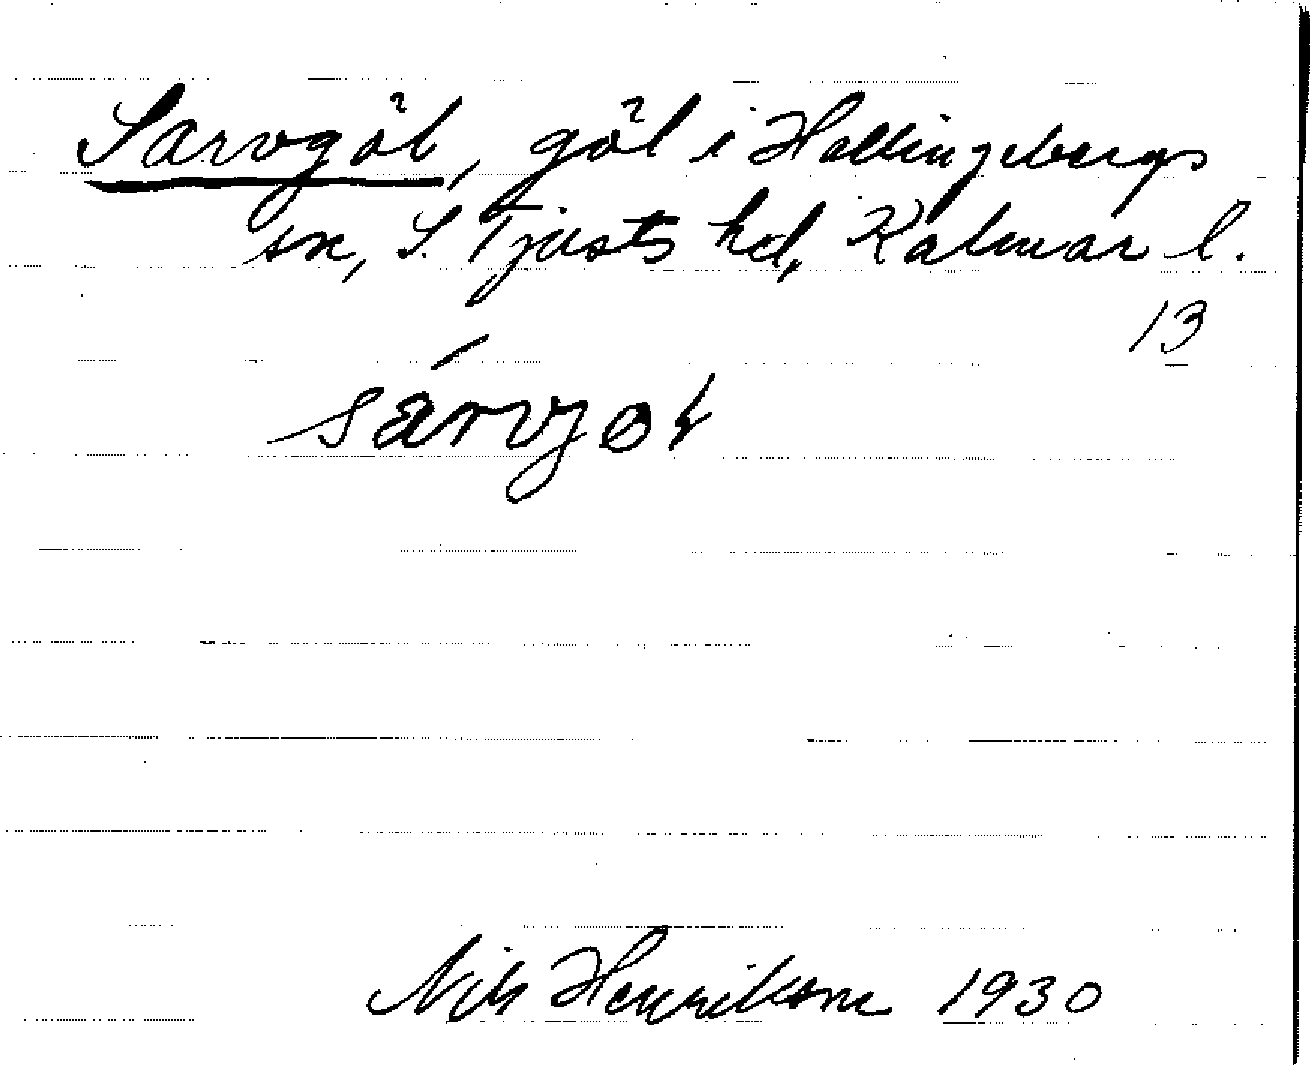 Sarvgöl, göl i Hallingebergs
sn, S. Tjusts hd, Kalmar l.
13
Nils Henrikson 1930